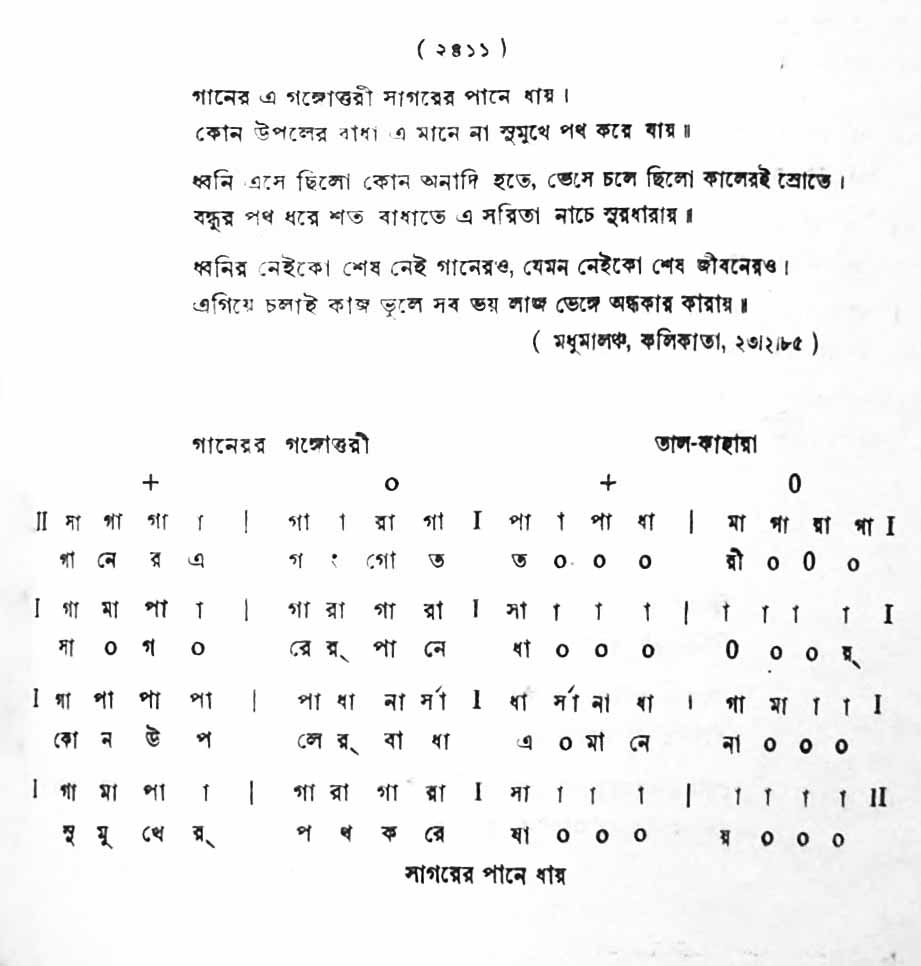 ( ২৪১১ )
গানের এ গঙ্গোত্তরী সাগরের পানে ধায় ।
কোন উপলের বাধা এ মানে না সুমুখে পথ করে যায় ॥
ধ্বনি এসে ছিলো কোন অনাদি হতে, ভেসে চলে ছিলো কালেরই স্রোতে ।
বন্ধুর পথ ধরে শত বাধাতে এ সরিতা নাচে সুরধারায় ॥
ধ্বনির নেইকো শেষ নেই গানেরও, যেমন নেইকো শেষ জীবনেরও ।
এগিয়ে চলাই কাজ ভুলে সব ভয় লাজ ভেঙ্গে অন্ধকার কারায় ॥
( মধুমালঞ্চ, কলিকাতা, ২৩।২।৮৫ )
গানেরর গঙ্গোত্তরী তাল-কাহারা
+ ০ + 0
II সা গা গা া | গা া রা গা I পা া পা ধা | মা পা রা গা I
গা নে র এ গ ং গো ত ত ০ ০ ০ রী ০ 0 ০
I গা মা পা া | গা রা গা রা I সা া া া | া া া া I
সা ০ গ ০ রে র্ পা নে ধা ০ ০ ০ 0 ০ ০ য়্
I গা পা পা পা | পা ধা না র্সা I ধা র্সা না ধা । গা মা া া I
কো ন উ প লে র্ বা ধা এ ০ মা নে না ০ ০ ০
I গা মা পা া | গা রা গা রা I সা া া া | া া া া II
সু মু খে র্ প থ ক রে যা ০ ০ ০ য় ০ ০ ০
সাগরের পানে ধায়